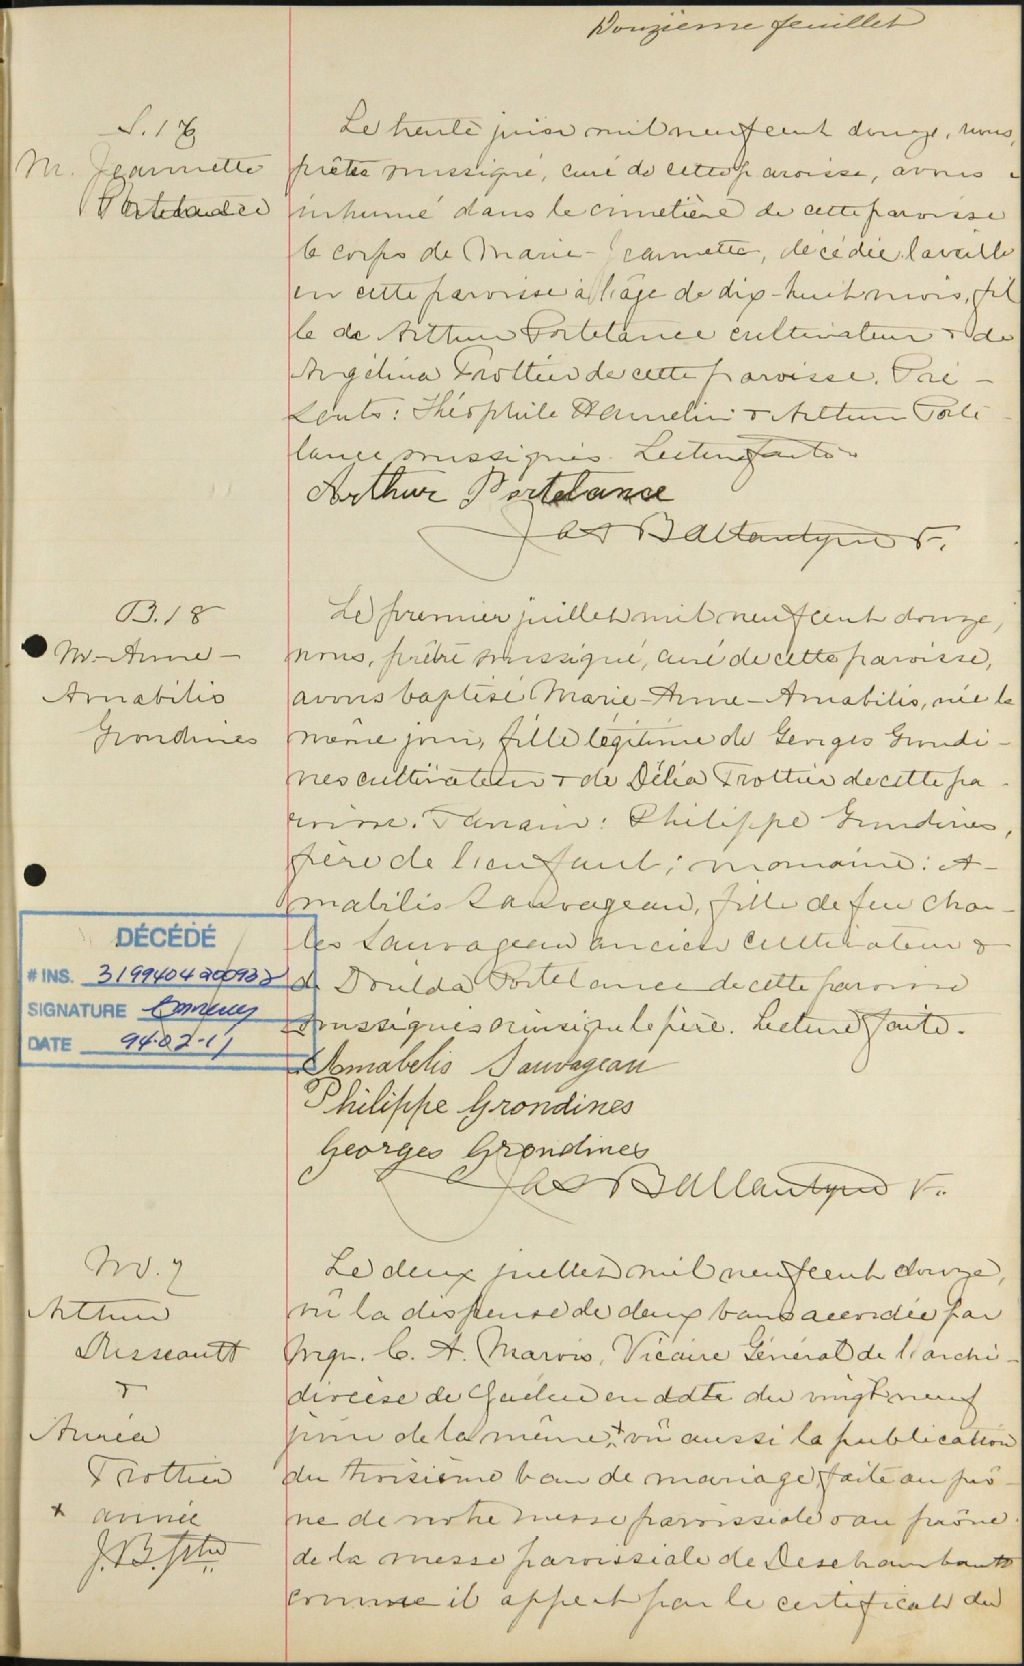 Douzième feuillet
S. 17
M. Jeannette
Portelance
Le trente juin mil neuf cent douze, nous,
prêtre soussigné, curé de cette paroisse, avons
inhumé dans le cimetière de cette paroisse
le corps de Marie-Jeannette, décédée la veille
en cette paroisse à l'âge de dix-huit mois, fil
le de Arthur Portelance cultivateur & de
Angélina Trottier de cette paroisse. Pré-
sents: Théophile Hamelin & Arthur Porte
lance soussignés. Lecture faite.
Arthur Portelance
Jas Ballantyne Ptr.
B. 18
M-Anne-
Amabilis
Grondines
Le premier juillet mil neuf cent douze,
nous, prêtre soussigné, curé de cette paroisse,
avons baptisé Marie-Anne-Amabilis, née le
même jour, fille légitime de Georges Grondi-
nes cultivateur & de Délia Trottier de cette pa-
roisse. Parrain: Philippe Grondines,
frère de l'enfant; marraine: A-
mabilis Sauvageau, fille de feu Char-
les Sauvageau ancien cultivateur &
de Donilda Portelance de cette paroisse
soussignés ainsi que le père. Lecture faite.
DÉCÉDÉ
# INS. 3199404200932
SIGNATURE
DATE 94-02-11
Amabelis Sauvageau
Philippe Grondines
Georges Grondines
Jas Ballantyne Ptr.
M. 7
Arthur
Busseault
&
Auréa
Trottier
+ année
J.B. ptre
Le deux juillet mil neuf cent douze,
vû la dispense de deux bans accordée par
Mgr. C. A. Marois, Vicaire Général de l'archi-
diocèse de Québec en date du vingt neuf
juin de la même + vû aussi la publication
du troisième ban de mariage faite au prô-
ne de notre messe paroissiale & au prône
de la messe paroissiale de Deschambault
comme il appert par le certificat du